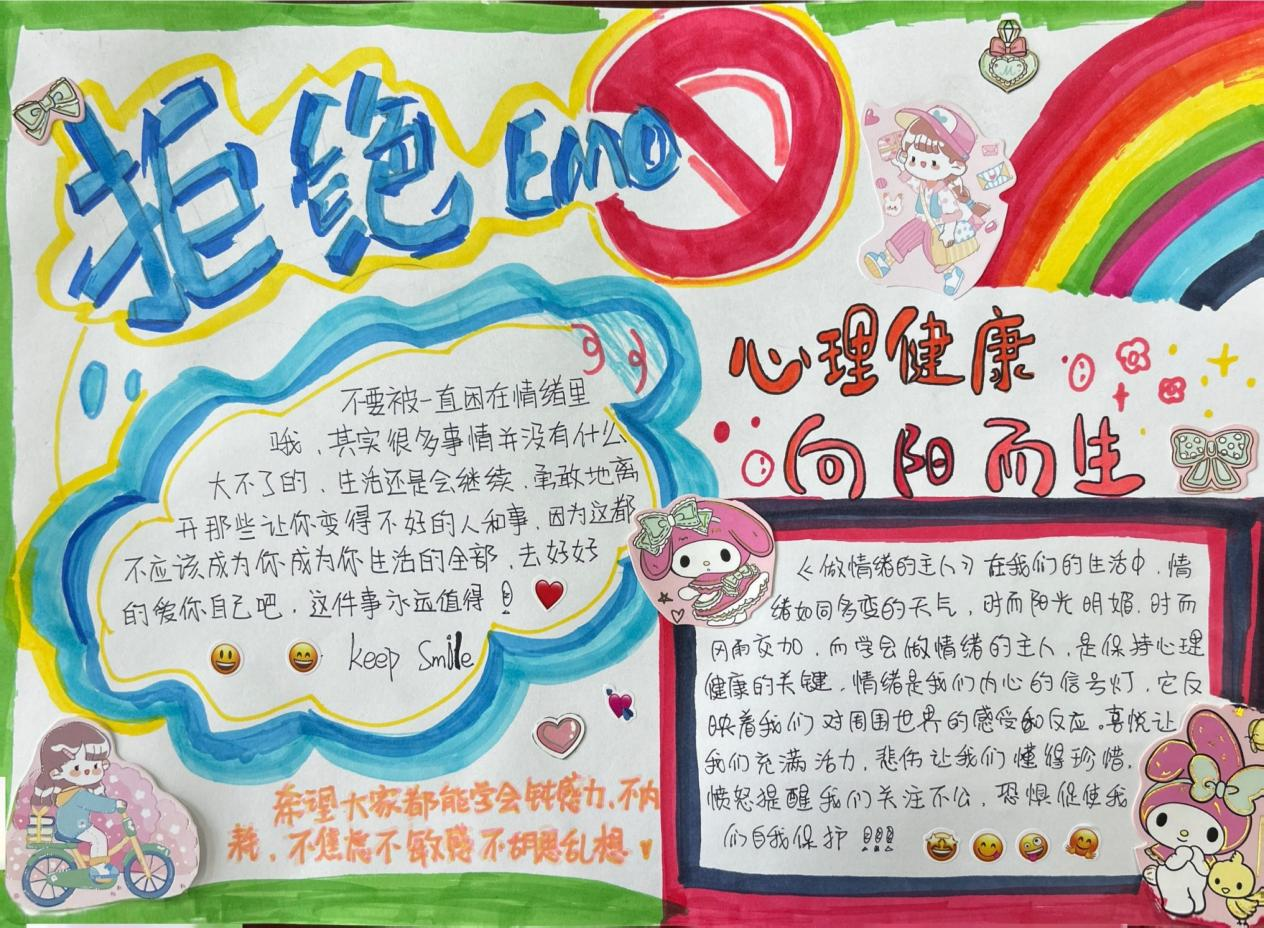 拒绝Emo
不要被一直困在情绪里
哦，其实很多事情并没有什么
大不了的，生活还是会继续，勇敢地离
开那些让你变得不好的人和事，因为这都
不应该成为你成为你生活的全部，去好好
的爱你自己吧，这件事永远值得！
keep Smile
希望大家都能学会钝感力、不内
耗，不焦虑不敏感不胡思乱想
心理健康
向阳而生
《做情绪的主人》在我们的生活中，情
绪如同多变的天气，时而阳光明媚，时而
风雨交加，而学会做情绪的主人，是保持心理
健康的关键，情绪是我们内心的信号灯，它反
映着我们对周围世界的感受和反应。喜悦让
我们充满活力，悲伤让我们懂得珍惜，
愤怒提醒我们关注不公，恐惧促使我
们自我保护!!!